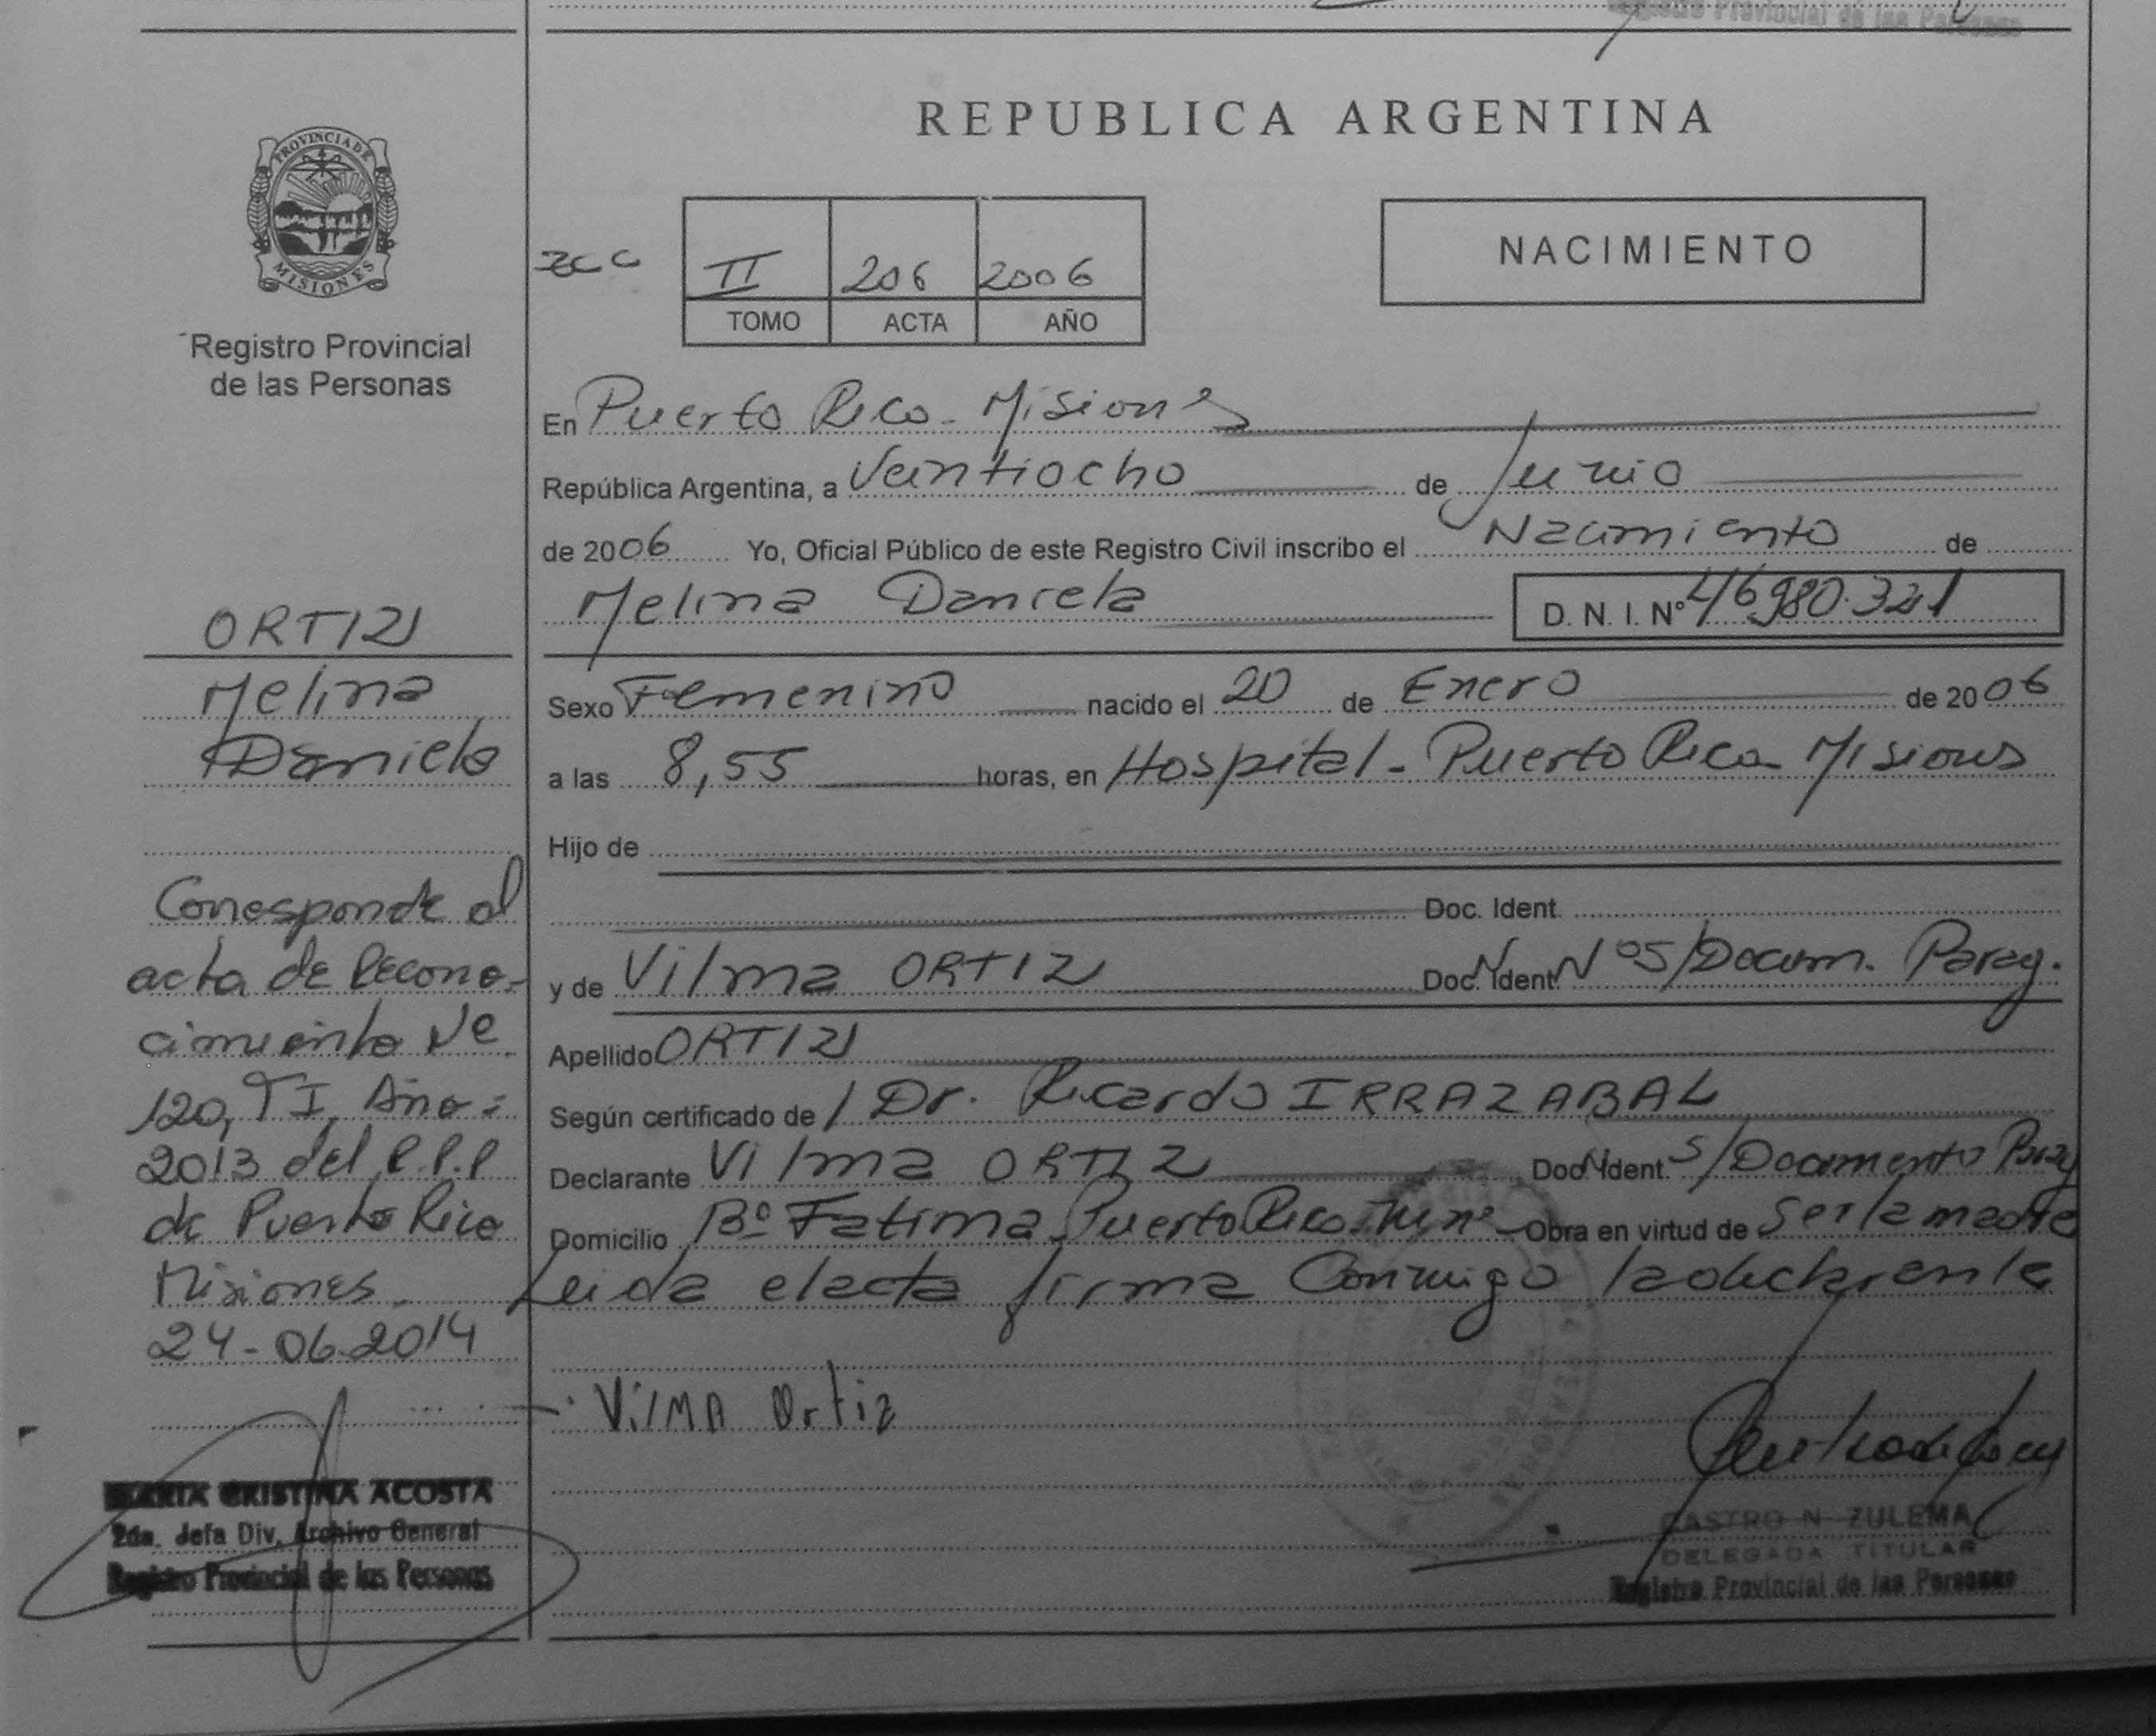 Registro Provincial de las Personas
REPUBLICA ARGENTINA
PROVINCIA DE
MISIONES
Registro Provincial
de las Personas
II 206 2006
TOMO ACTA AÑO
NACIMIENTO
En Puerto Rico - Misiones
República Argentina, a Veintiocho de Junio
de 2006 Yo, Oficial Público de este Registro Civil inscribo el Nacimiento de
Melina Daniela D. N. I. Nº 46980.321
Sexo Femenino nacido el 20 de Enero de 2006
a las 8,55 horas, en Hospital - Puerto Rico Misiones
Hijo de
Doc. Ident.
y de Vilma ORTIZ Doc. Ident. Nº S/Docum. Parag.
Apellido ORTIZ
Según certificado de / Dr. Ricardo IRRAZABAL
Declarante Vilma ORTIZ Doc. Ident. S/Documento Parag
Domicilio Bº Fatima Puerto Rico Mnes Obra en virtud de Ser la madre
Leida el acta firma Conmigo la declarante
Vilma Ortiz
CASTRO N. ZULEMA
DELEGADA TITULAR
Registro Provincial de las Personas
ORTIZ
Melina
Daniela
Corresponde al
acta de Recono-
cimiento Nº
120, TI, Año =
2013 del R.P.P
de Puerto Rico
Misiones.
24-06-2014
MARIA CRISTINA ACOSTA
2da. Jefa Div. Archivo General
Registro Provincial de las Personas